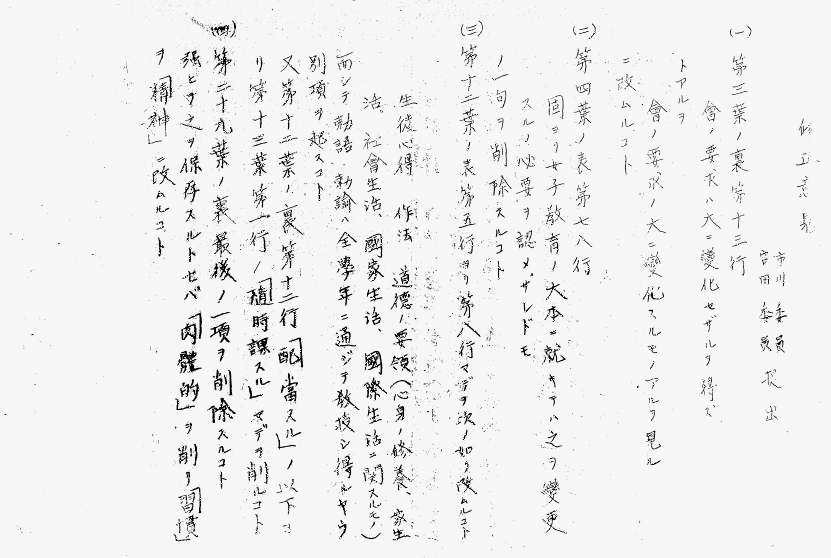 修正意見
市川委員
吉田委員 提出
(一) 第三葉ノ裏第十三行
會ノ要求ハ大ニ變化セザルヲ得ズ
トアルヲ
會ノ要求ノ大ニ變化スルモノアルヲ見ル
ニ改ムルコト
(二) 第四葉ノ表第七八行
固ヨリ女子教育ノ大本ニ就キテハ之ヲ變更
スルノ必要ヲ認メザレドモ
ノ一句ヲ削除スルコト
(三) 第十二葉ノ表第五行ヨリ第八行マデヲ次ノ如ク改ムルコト
生徒心得 作法 道德ノ要領(心身ノ修養、家生
活、社會生活、國家生活、國際生活ニ関スルモノ)
而シテ勅語、勅諭ハ全學年ニ通ジテ教授シ得ルヤウ
別項ヲ起スコト
又第十二葉ノ裏第十二行「配當スル」ノ以下ヨ
リ第十三葉第一行ノ「隨時課スル」マデヲ削ルコト
(四) 第二十九葉ノ裏最後ノ一項ヲ削除スルコト
强ヒテ之ヲ保存スルトセバ「肉體的」ヲ削リ「習慣」
ヲ「精神」ニ改ムルコト